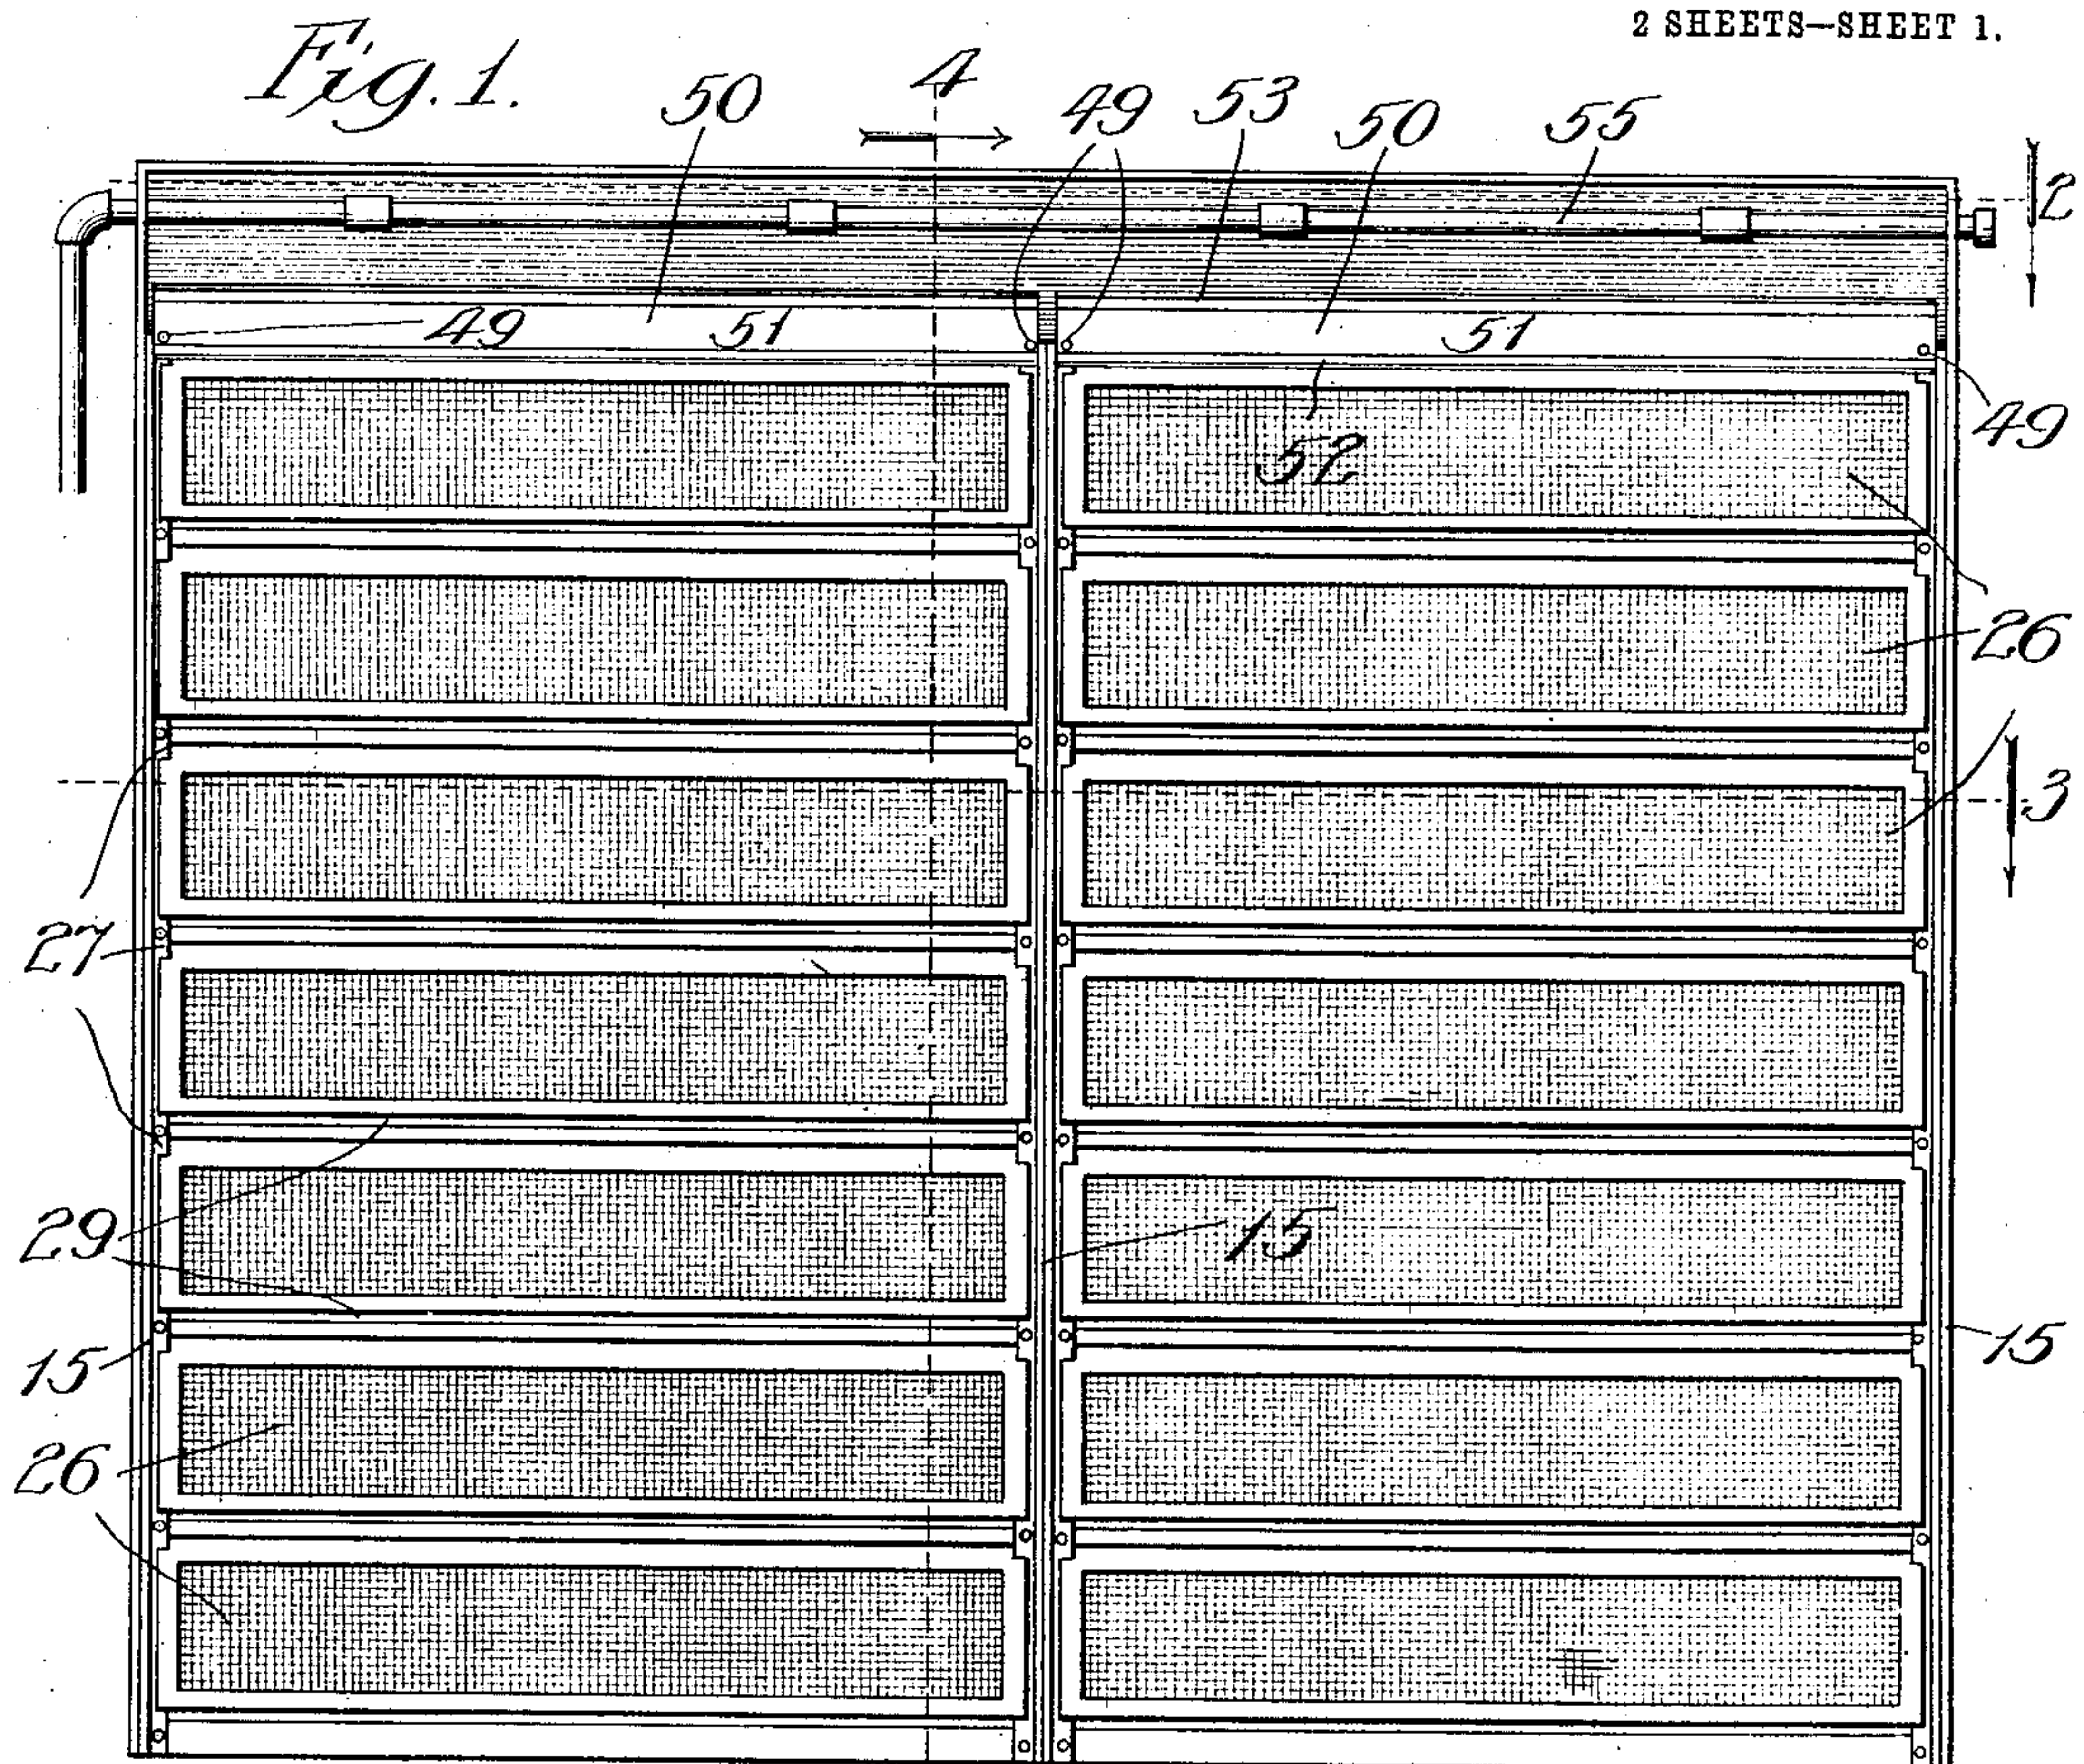 2 SHEETS—SHEET 1.
Fig. 1.
50
4
49
53
50
55
2
49
51
51
52
49
26
3
27
29
15
15
15
26